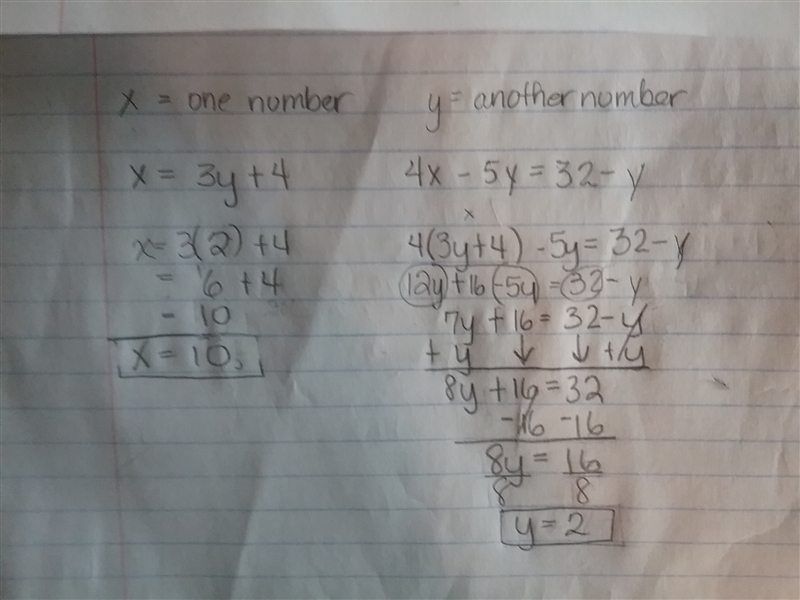 x = one number
y = another number
x = 3y + 4
4x - 5y = 32 - y
x = 3(2) + 4
= 6 + 4
= 10
x = 10,
x
4(3y+4) - 5y = 32 - y
12y + 16 - 5y = 32 - y
7y + 16 = 32 - y
+ y ↓ ↓ + y
8y + 16 = 32
- 16 - 16
8y = 16
8 8
y = 2